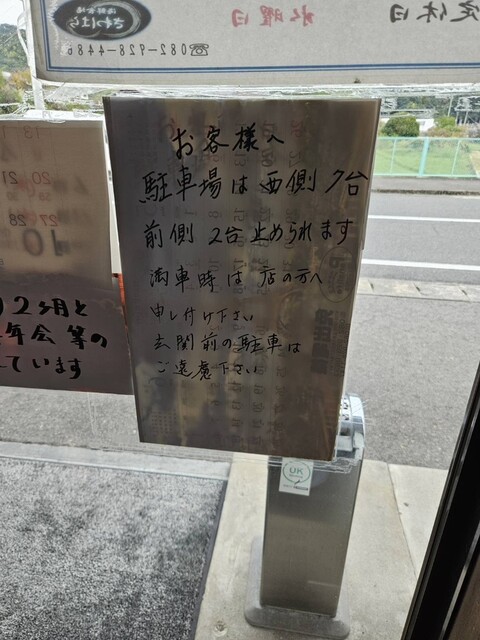 定休日 水曜日
☎082-928-4486
お客様へ
駐車場は西側7台
前側2台止められます
満車時は店の方へ
申し付け下さい
玄関前の駐車は
ご遠慮下さい
2ヶ月と
年会等の
ています
13
20 21
27 28
10
UK